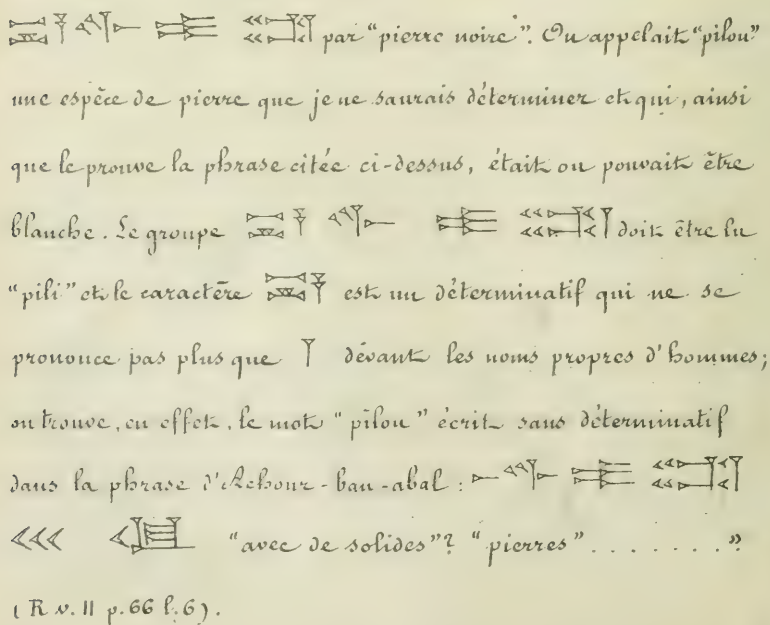 par “pierre noire”. On appelait “pilou”
une espèce de pierre que je ne saurais déterminer et qui, ainsi
que le prouve la phrase citée ci-dessus, était ou pouvait être
blanche. Le groupe doit être lu
“pili” et le caractère est un déterminatif qui ne se
prononce pas plus que 𒁹 dévant les noms propres d'hommes;
on trouve, en effet, le mot “pilou” écrit sans déterminatif
dans la phrase d'Achour-ban-abal :
“avec de solides”? “pierres” . . . . . . . ”
( R v. II p. 66 l. 6 ).